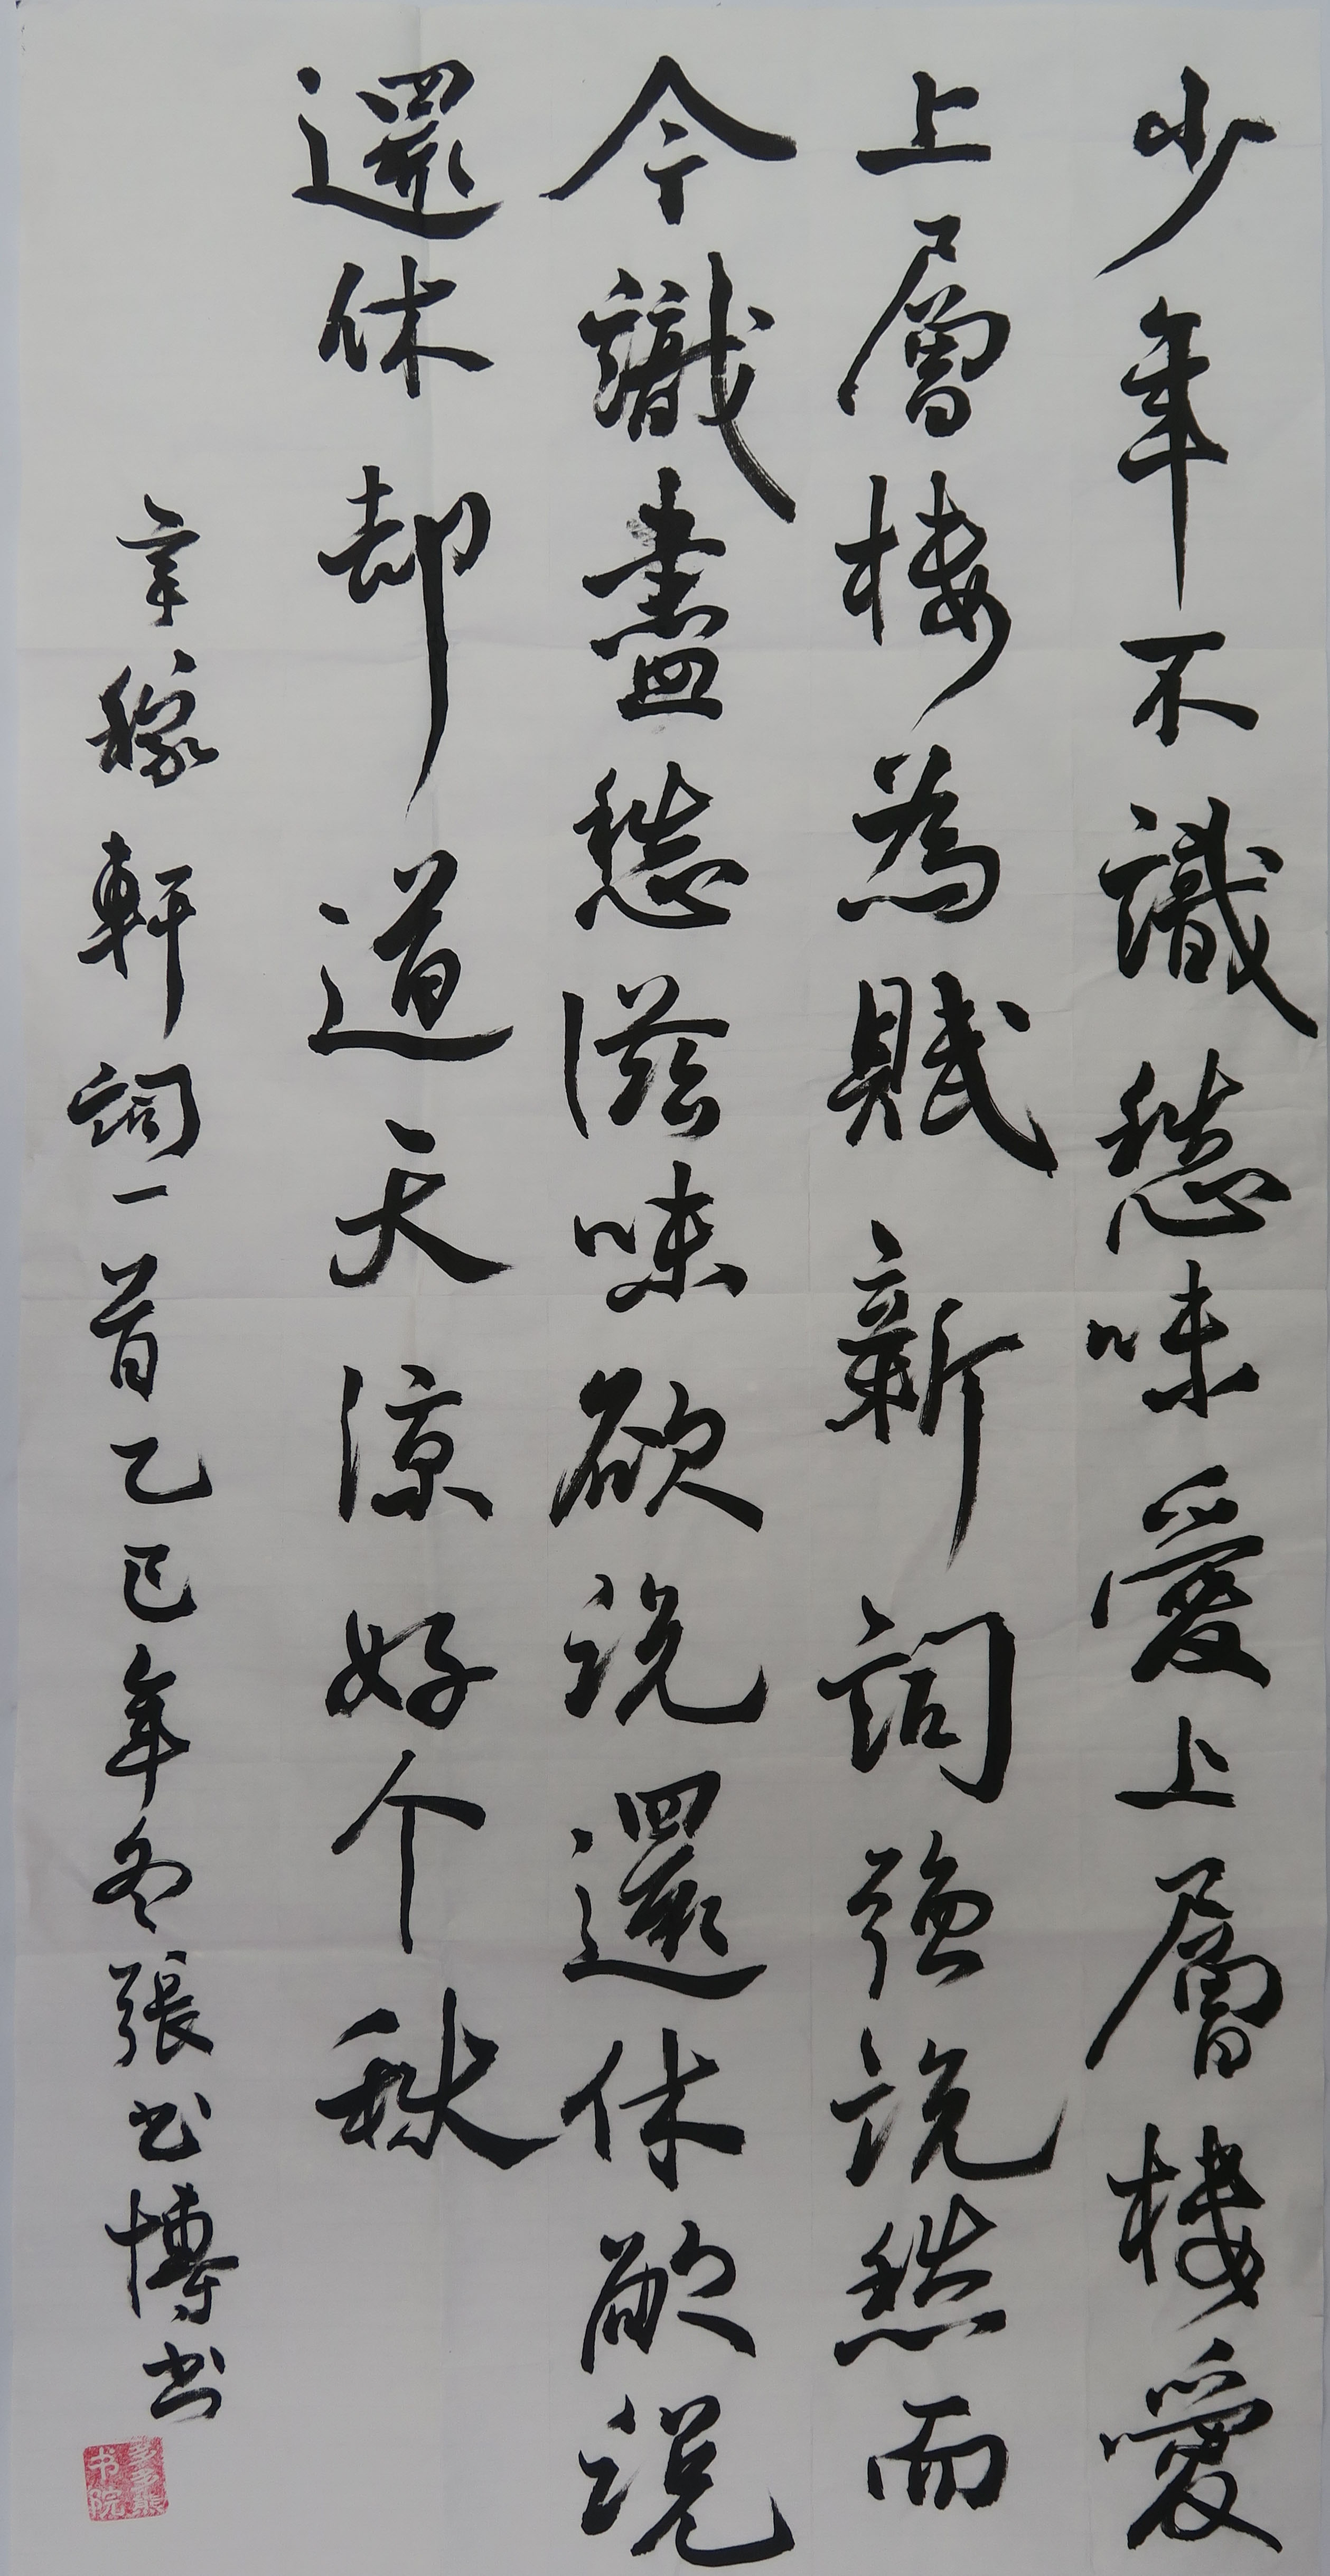 少年不識愁味愛上層樓愛
上層樓為賦新詞強説愁而
今識盡愁滋味欲説還休欲説
還休却道天涼好个秋
辛稼軒詞一首乙巳年冬張博书
多多熊书院